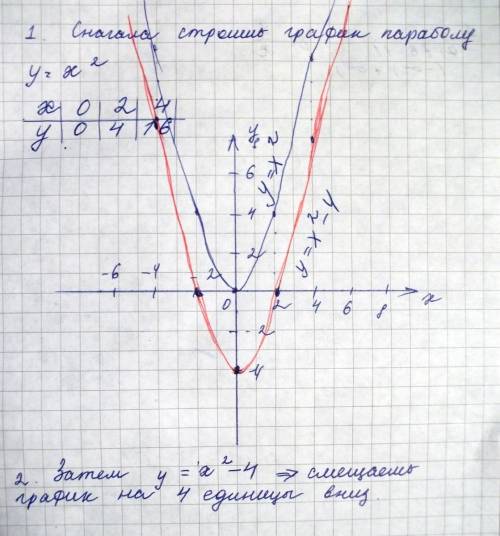 1. Сначала строишь график параболу
y = x²
x 0 2 4
y 0 4 16
y
6
4
2
y = x²
y = x² - 4
-6 -4 -2 0 2 4 6 8 x
-2
-4
2. Затем y = x² - 4 ⇒ смещаешь
график на 4 единицы вниз.